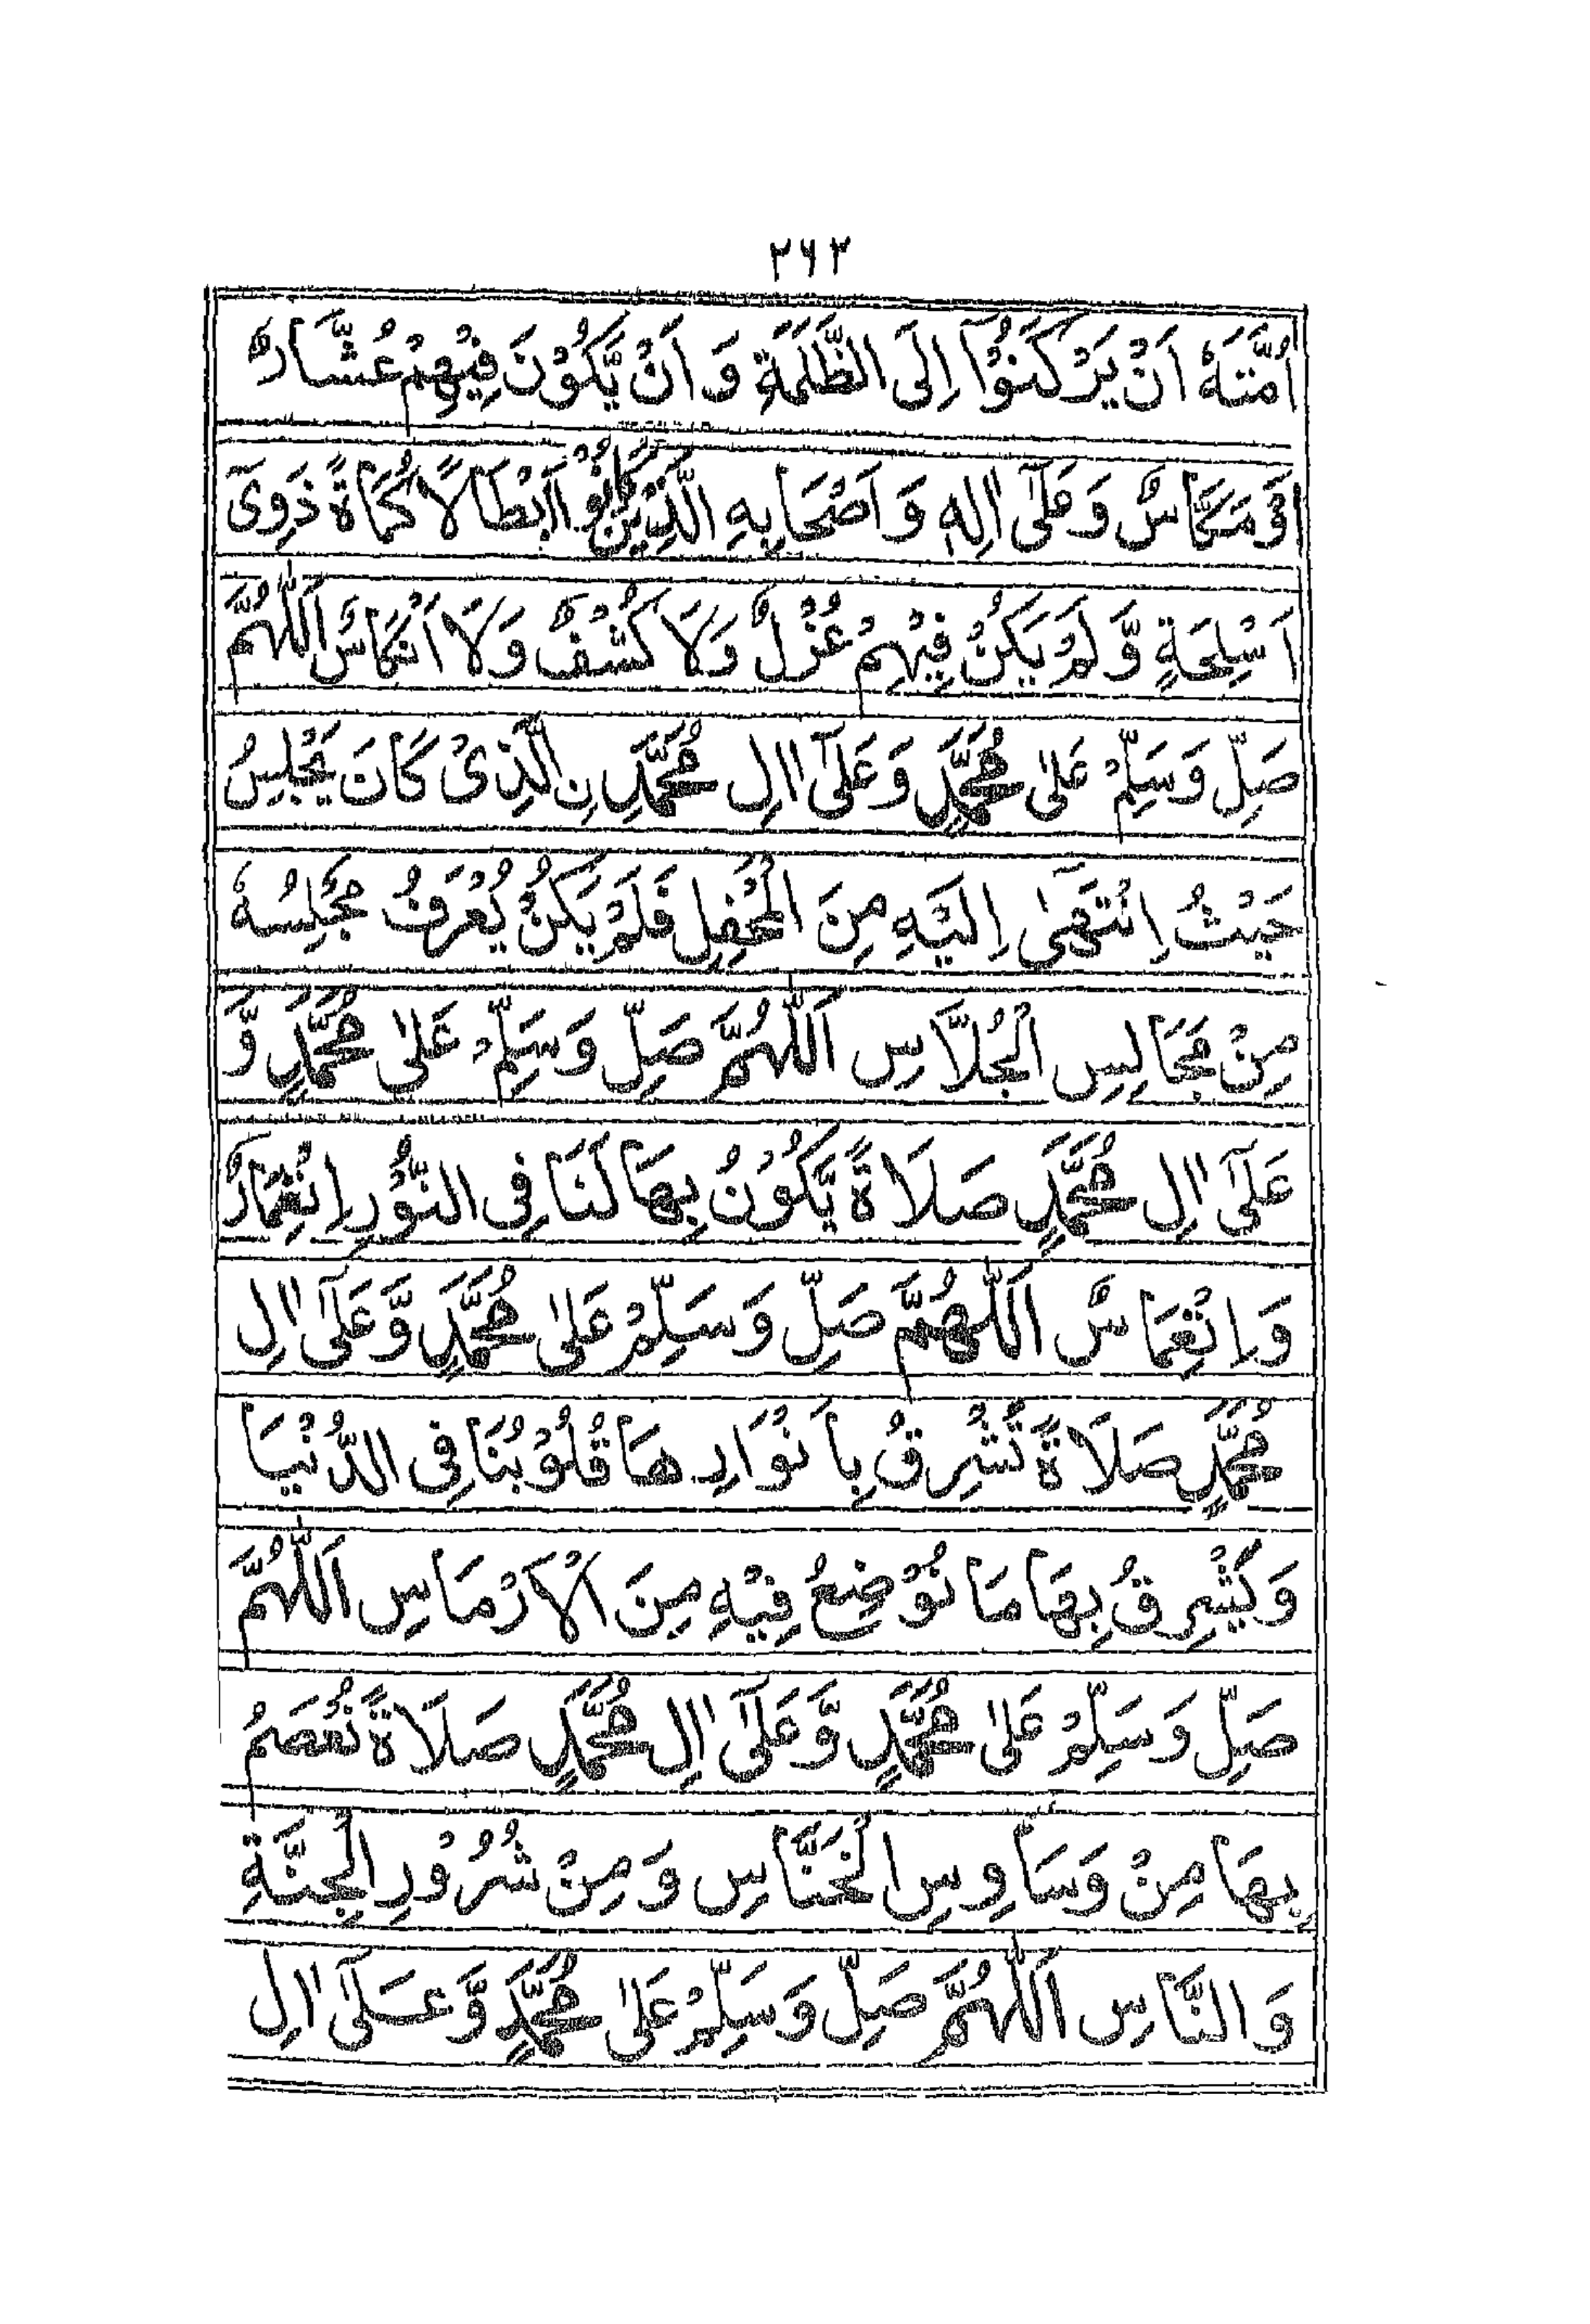 ۲۶۳
اُمَّتَهٗ اَنْ يَرْكَنُوْٓا اِلَى الظَّلَمَةِ وَ اَنْ يَّكُوْنَ فِيْهِمْ عُشَّارٌ
اَوْ مَكَّاسٌ وَعَلٰٓى اٰلِهٖ وَ اَصْحَابِهِ الَّذِيْنَ كَانُوْا اَبْطَالًا كُمَاةً ذَوِىْٓ
اَسْلِحَةٍ وَّ لَمْ يَكُنْ فِيْهِمْ عُزْلٌ وَلَا كُشْفٌ وَلَا اَنْكَاسٌ اَللّٰهُمَّ
صَلِّ وَسَلِّمْ عَلٰى مُحَمَّدٍ وَعَلٰٓى اٰلِ مُحَمَّدِ نِ الَّذِىْ كَانَ يَجْلِسُ
حَيْثُ اِنْتَهٰٓى اِلَيْهِ مِنَ الْمَحْفِلِ فَلَمْ يَكُنْ يُعْرَفُ مَجْلِسُهٗ
مِنْ مَجَالِسِ الْجُلَّاسِ اَللّٰهُمَّ صَلِّ وَسَلِّمْ عَلٰى مُحَمَّدٍ وَّ
عَلٰٓى اٰلِ مُحَمَّدٍ صَلَاةً يَّكُوْنُ بِهَا لَنَا فِى النُّوْرِ اِنْغِمَادٌ
وَ اِنْغِمَاسٌ اَللّٰهُمَّ صَلِّ وَسَلِّمْ عَلٰى مُحَمَّدٍ وَّعَلٰٓى اٰلِ
مُحَمَّدٍ صَلَاةً تَشْرِقُ بِاَنْوَارِهَا قُلُوْبُنَا فِى الدُّنْيَا
وَيَشْرِقُ بِهَا مَا نُوْضِعُ فِيْهِ مِنَ الْاَرْمَاسِ اَللّٰهُمَّ
صَلِّ وَسَلِّمْ عَلٰى مُحَمَّدٍ وَّعَلٰٓى اٰلِ مُحَمَّدٍ صَلَاةً نُعْصَمُ
بِهَا مِنْ وَسَاوِسِ الْخَنَّاسِ وَمِنْ شُرُوْرِ الْجِنَّةِ
وَ النَّاسِ اَللّٰهُمَّ صَلِّ وَسَلِّمْ عَلٰى مُحَمَّدٍ وَّعَلٰٓى اٰلِ